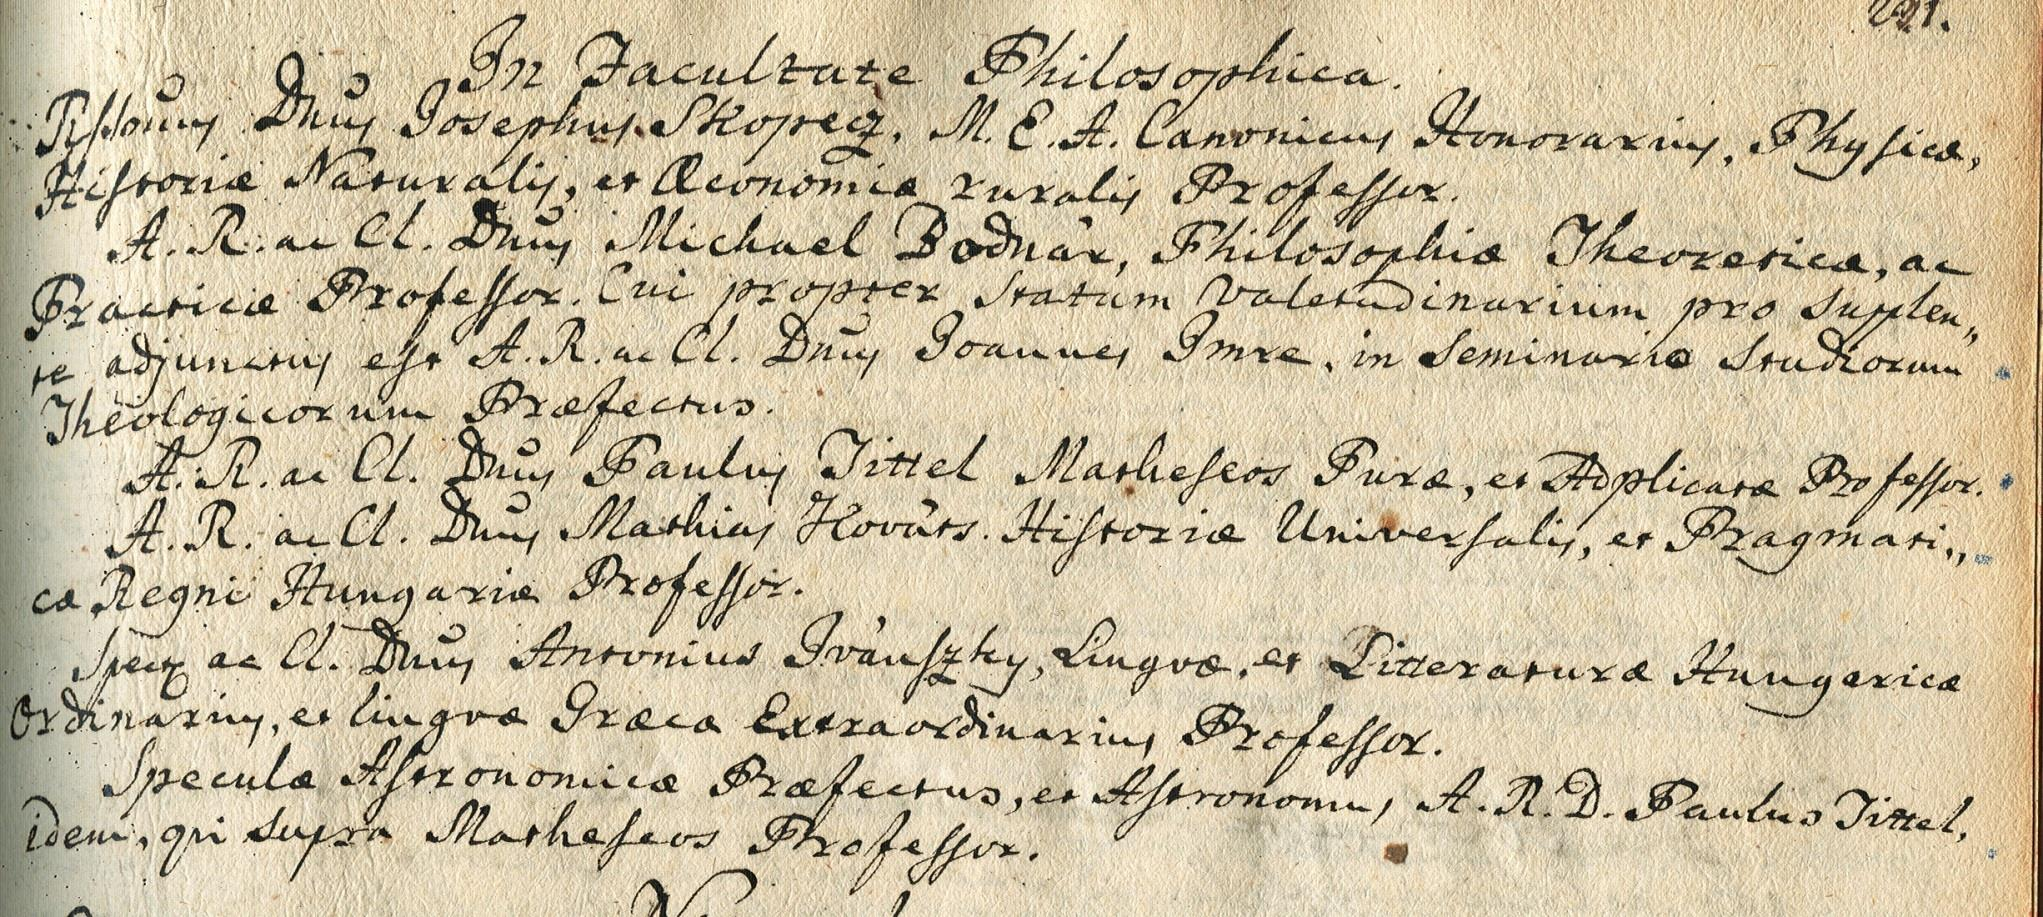 In Facultate Philosophica.
Dnus Josephus Skopecz, M. E. A. Canonicus Honorarius, Physicæ,
Historiæ Naturalis, et Œconomiæ ruralis Professor.
A. R. ac Cl. Dnus Michael Bodnár, Philosophiæ Theoreticæ, ac
Practicæ Professor. Cui propter statum valetudinarium pro supplen„
te adjunctus est A. R. ac Cl. Dnus Joannes Imre, in Seminario Studiorum
Theologicorum Præfectus.
A. R. ac Cl. Dnus Paulus Tittel Matheseos Puræ, et Adplicatæ Professor.
A. R. ac Cl. Dnus Mathias Kováts. Historiæ Universalis, et Pragmati„
cæ Regni Hungariæ Professor.
Spect. ac Cl. Dnus Antonius Ivánszky, Lingvæ, et Litteraturæ Hungaricæ
Ordinarius, et lingvæ Græcæ Extraordinarius Professor.
Speculæ Astronomicæ Præfectus, et Astronomus A. R. D. Paulus Tittel,
idem, qui supra Matheseos Professor.